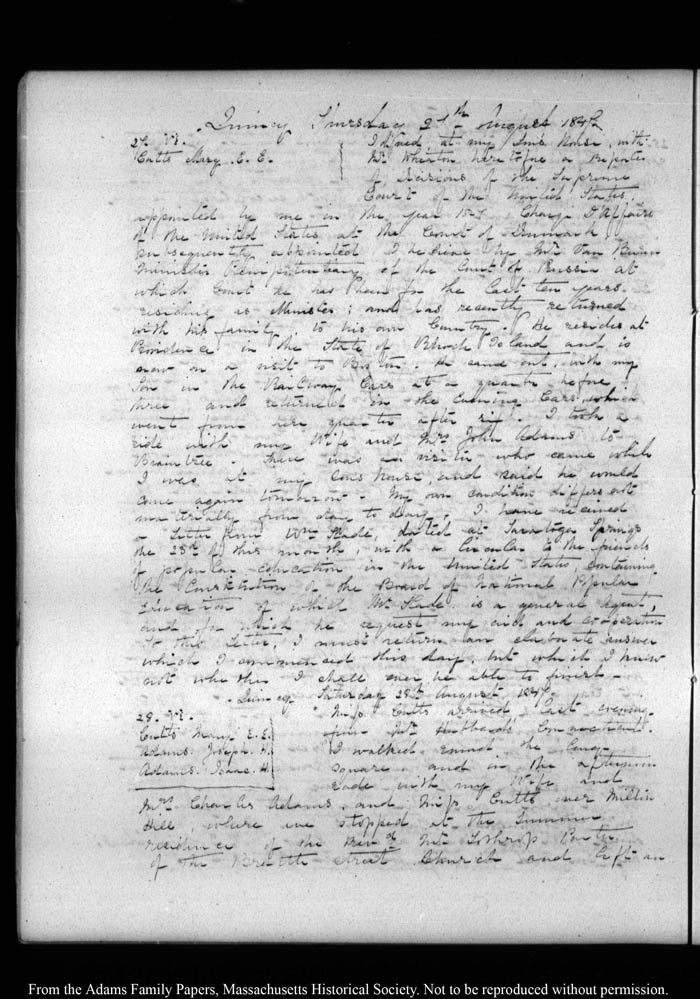 Quincy Thursday 27th August 1847
27. VI.
Cutts Mary. E. E.
I dined at my Son's House, with
Mr Wheaton heretofore a Reporter
of decisions of the Supreme
Court of the United States,
appointed by me in the year 1827 Chargé D'Affaires
of the United States at the Court of Denmark,
subsequently appointed I believe by Mr Van Buren
Minister Plenipotentiary of the Court of Prussia at
which Court he has been for the last ten years
residing as Minister; and has recently returned
with his family, to his own Country. He resides at
Providence in the State of Rhode Island and is
now on a visit to Boston. He came out, with my
Son in the Railway Cars at a quarter before
three and returned in the evening Cars, which
went from here quarter after six. I took a
ride with my Wife and Mrs John Adams to
Braintree. There was a visitor who came while
I was at my Sons house, and said he would
come again tomorrow. My own condition differs not
materially from day to day. I have received
a Letter from Wm Slade, dated at Saratoga Springs
the 23d of this month, with a Circular to the friends
of popular education in the United States, containing
the Constitution of the Board of National Popular
Education of which Mr Slade is a general Agent,
and for which he request my aid and cooperation
To this Letter, I must return an elaborate answer
which I commenced this day, but which I know
not whether I shall ever be able to finish.
Quincy Saturday 28th August 1847.
28. VI.
Cutts Mary E.E.
Adams. Joseph. H.
Adams. Isaac. H.
Miss Cutts arrived last evening
from Mr Hubbard's Connecticut.
I walked round the large
square, and in the afternoon
rode with my Wife and
Mrs Charles Adams, and Miss Cutts over Milton
Hill, where we stopped at the Summer
residence of the Revd Mr Lothrop Pastor
of the Brattle Street Church and left an
From the Adams Family Papers, Massachusetts Historical Society. Not to be reproduced without permission.